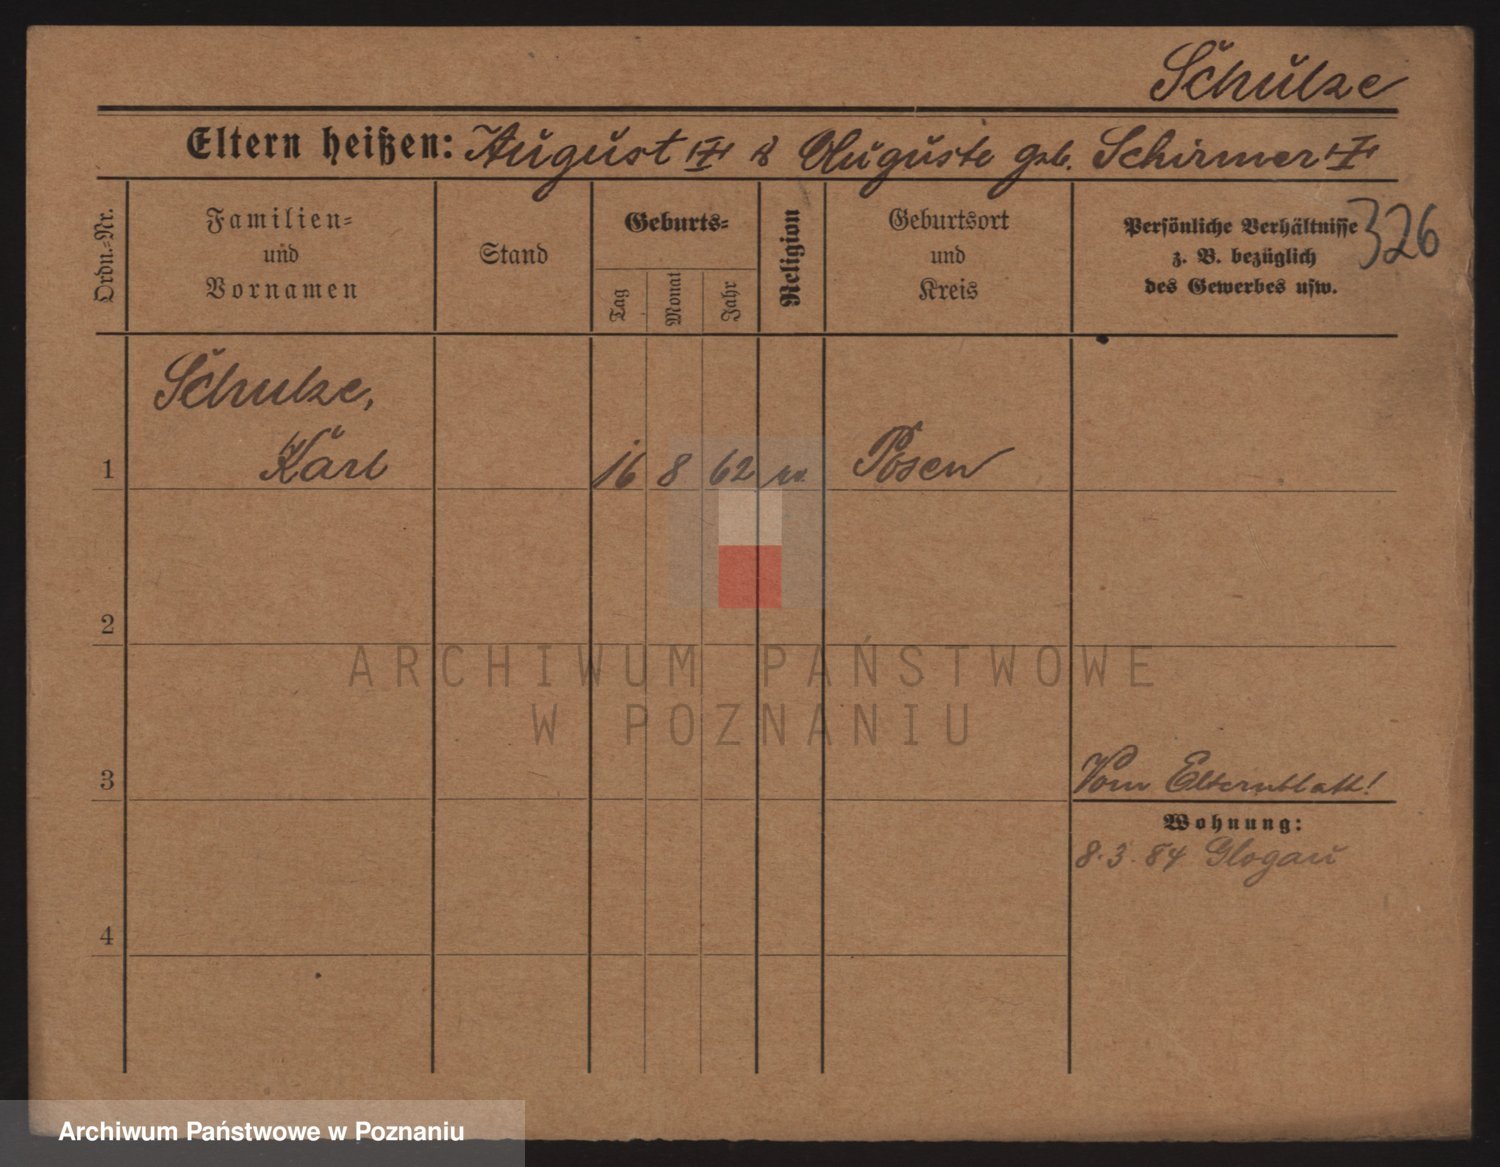 Schulze
Eltern heißen: August & Auguste geb. Schirmer
Ordn.-Nr.
Familien-
und
Vornamen
Stand
Geburts-
Tag
Monat
Jahr
Religion
Geburtsort
und
Kreis
Persönliche Verhältnisse
z. B. bezüglich
des Gewerbes usw.
326
Schulze,
1 Karl 16 8 62 Posen
2
ARCHIWUM PAŃSTWOWE
W POZNANIU
3 Vom Elternblatt!
Wohnung:
8.3.84 Glogau
4
Archiwum Państwowe w Poznaniu